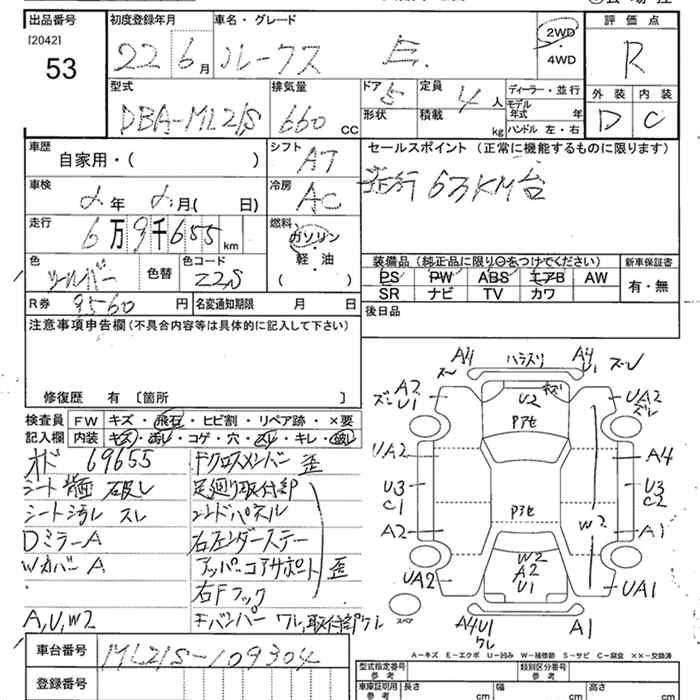 出品番号 初度登録年月 車名・グレード 2WD 評価点
[2042]
53 22 6月 ルークス E. 4WD R
型式 排気量 ドア 5 定員 4人 ディーラー・並行 外装 内装
形状 積載 kg モデル年式 年
DBA-ML21S 660 CC ハンドル 左・右 D C
車歴 シフト セールスポイント (正常に機能するものに限ります)
自家用・( ) AT
走行63KM台
車検 冷房
年 月( 日) AC
走行 燃料
6万9千655km ガソリン
軽・油
( )
色 シルバー 色替 色コード Z2S
装備品 (純正品に限り○をつけてください) 新車保証書
PS PW ABS エアB AW 有・無
SR ナビ TV カワ
R券 9560 円 名変通知期限 月 日
後日品
注意事項申告欄(不具合内容等は具体的に記入して下さい)
修復歴 有〔箇所 〕
検査員 FW キズ・飛石・ヒビ割・リペア跡・×要
記入欄 内装 キズ・汚レ・コゲ・穴・スレ・キレ・破レ
オド 69655
シート背面 破レ
シート汚レ スレ
DミラーA
Wカバー A
A,U,W2
Fクロスメンバー 歪
足廻り取付部
エンドパネル
右センダーステー
アッパーコアサポート 歪
右Fフック
Fバンパー ワレ,取付部ワレ
A4 ハラスリ A4
U1 ズレ
A2
U1 U2 キズ UA2
ズレ
Pアセ
UA2 A4
U3 U3
C1 C2
Pアセ
A2 W2 A1
W2
UA2 A2 UA1
U1
スペア
A4U1 A1
ワレ
A−キズ E−エクボ U−凹み W−補修跡 S−サビ C−腐食 ××−交換済
車台番号 ML21S-109304
登録番号
型式指定番号 参考 類別区分番号 参考
車庫証明用 参考 長さ cm 幅 cm 高さ cm